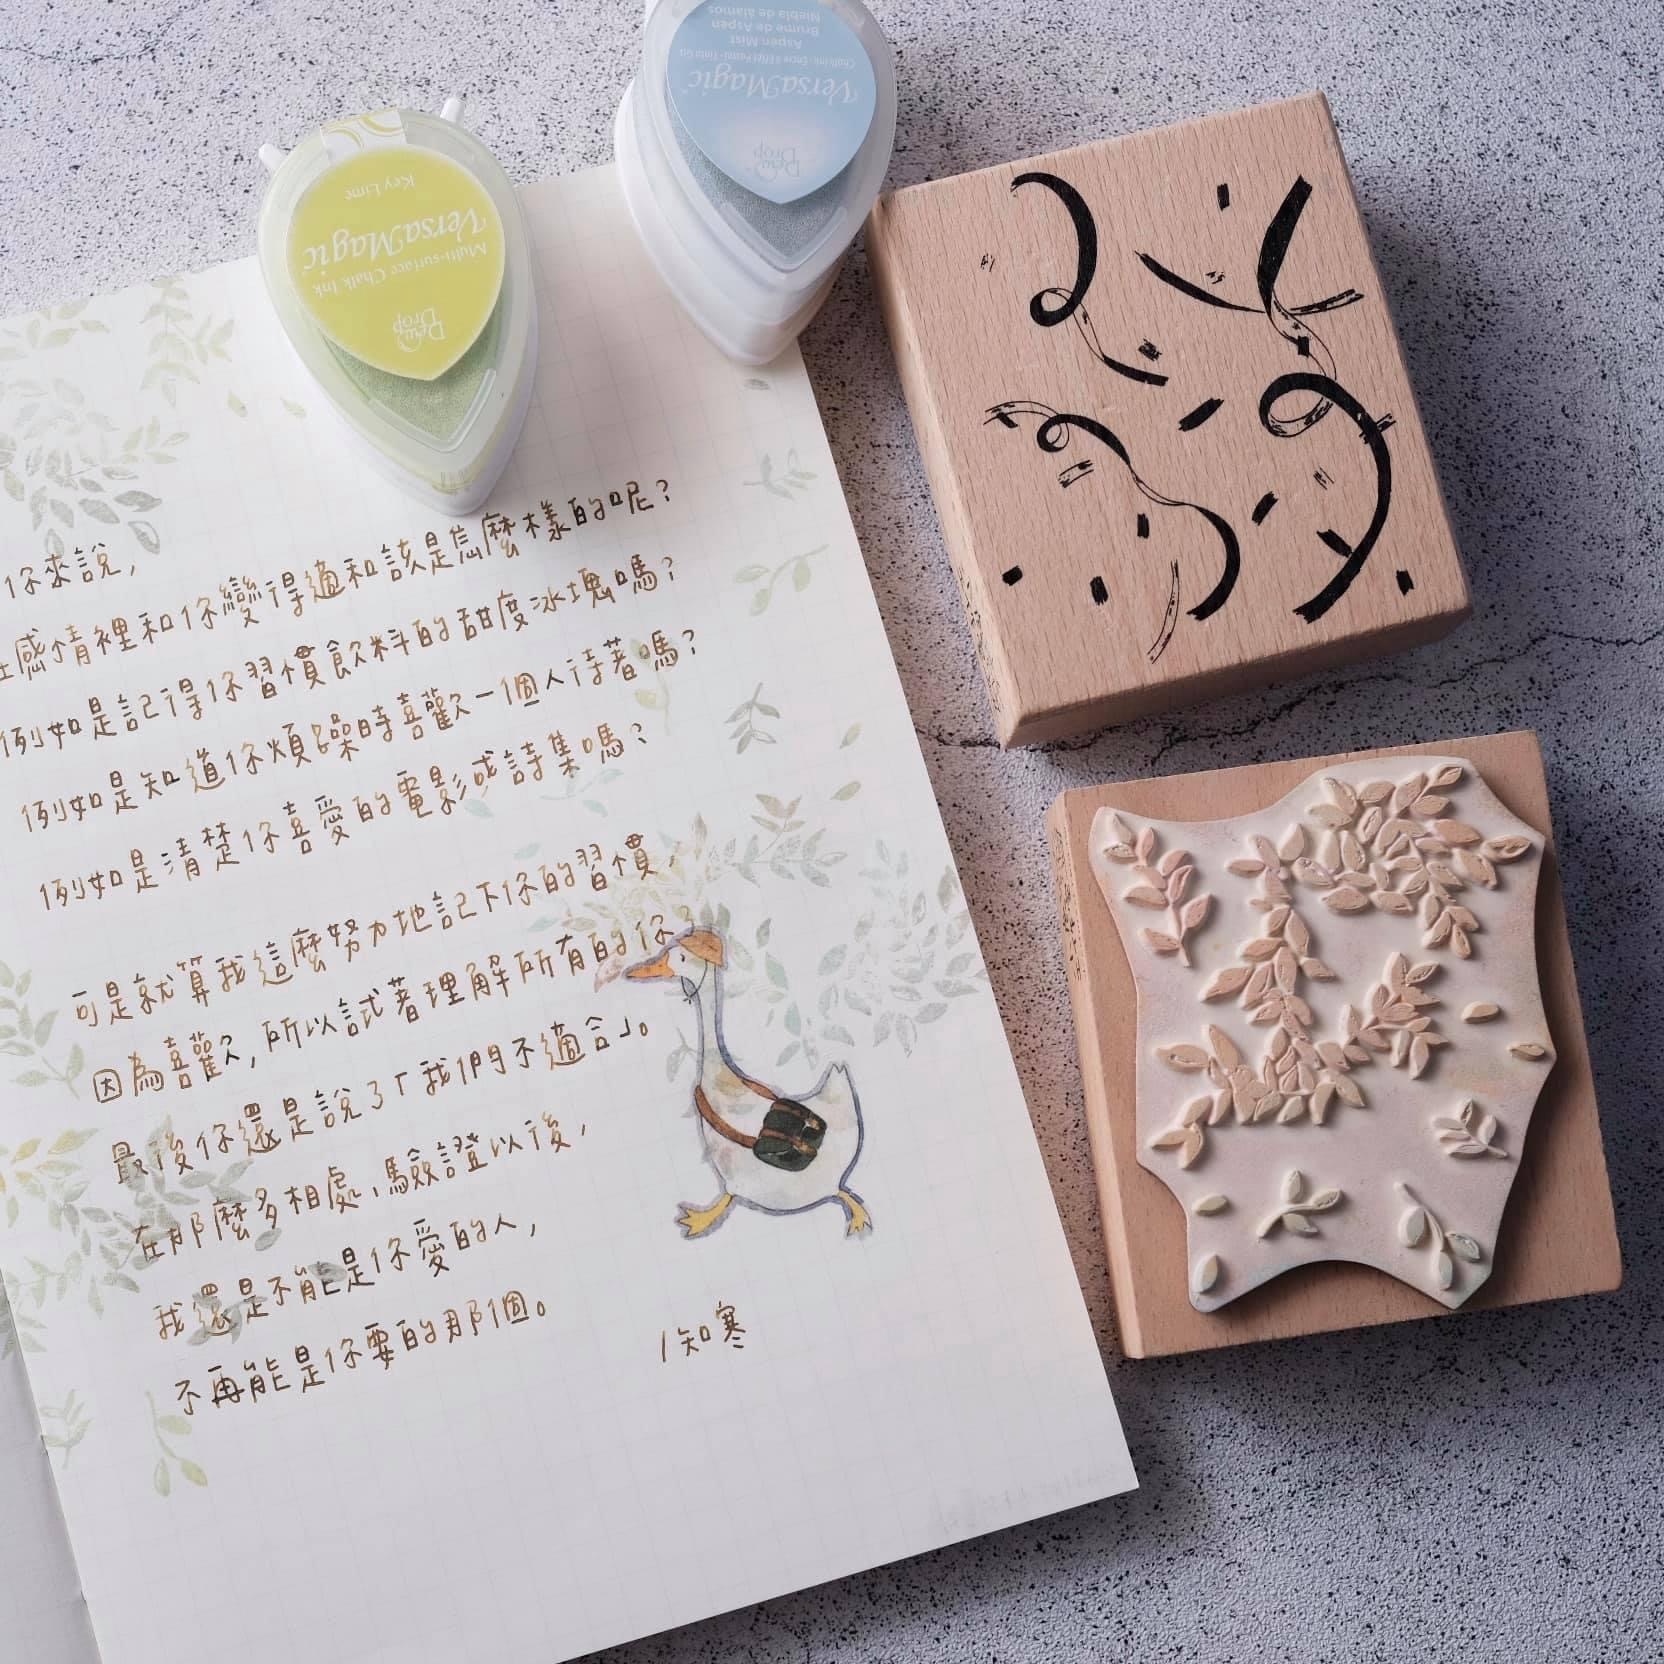 Key Lime
VersaMagic
Multi-surface Chalk Ink
Dew Drop
Niebla de álamos
Brume de Aspen
Aspen Mist
VersaMagic
Dew Drop
你來說，
感情裡和你變得適和該是怎麼樣的呢？
例如是記得你習慣飲料的甜度冰塊嗎？
例如是知道你煩躁時喜歡一個人待著嗎？
例如是清楚你喜愛的電影或詩集嗎？
可是就算我這麼努力地記下你的習慣，
因為喜歡，所以試著理解所有的你，
最後你還是說了「我們不適合」。
在那麼多相處、驗證以後，
我還是不能是你愛的人，
不再能是你要的那個。
/知寒